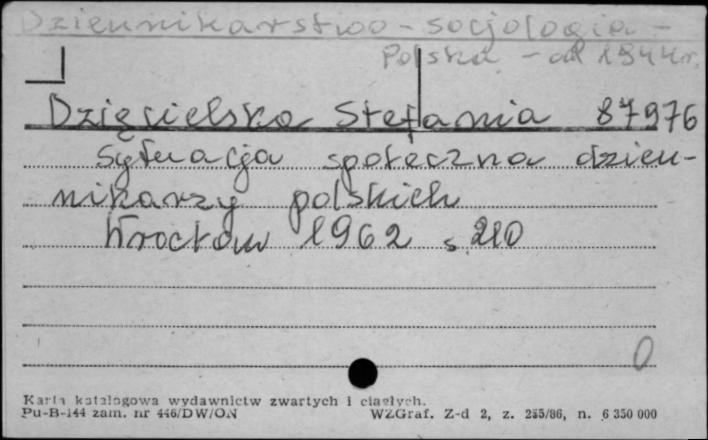 Dziennikarstwo - socjologia -
Polska - od 1944 r.
Dzięcielska Stefania 87976
Sytuacja społeczna dzien-
nikarzy polskich
Wrocław 1962 s. 210
0
Karta katalogowa wydawnictw zwartych i ciągłych.
Pu-B-144 zam. nr 446/DW/ON WZGraf. Z-d 2, z. 235/86, n. 6 350 000